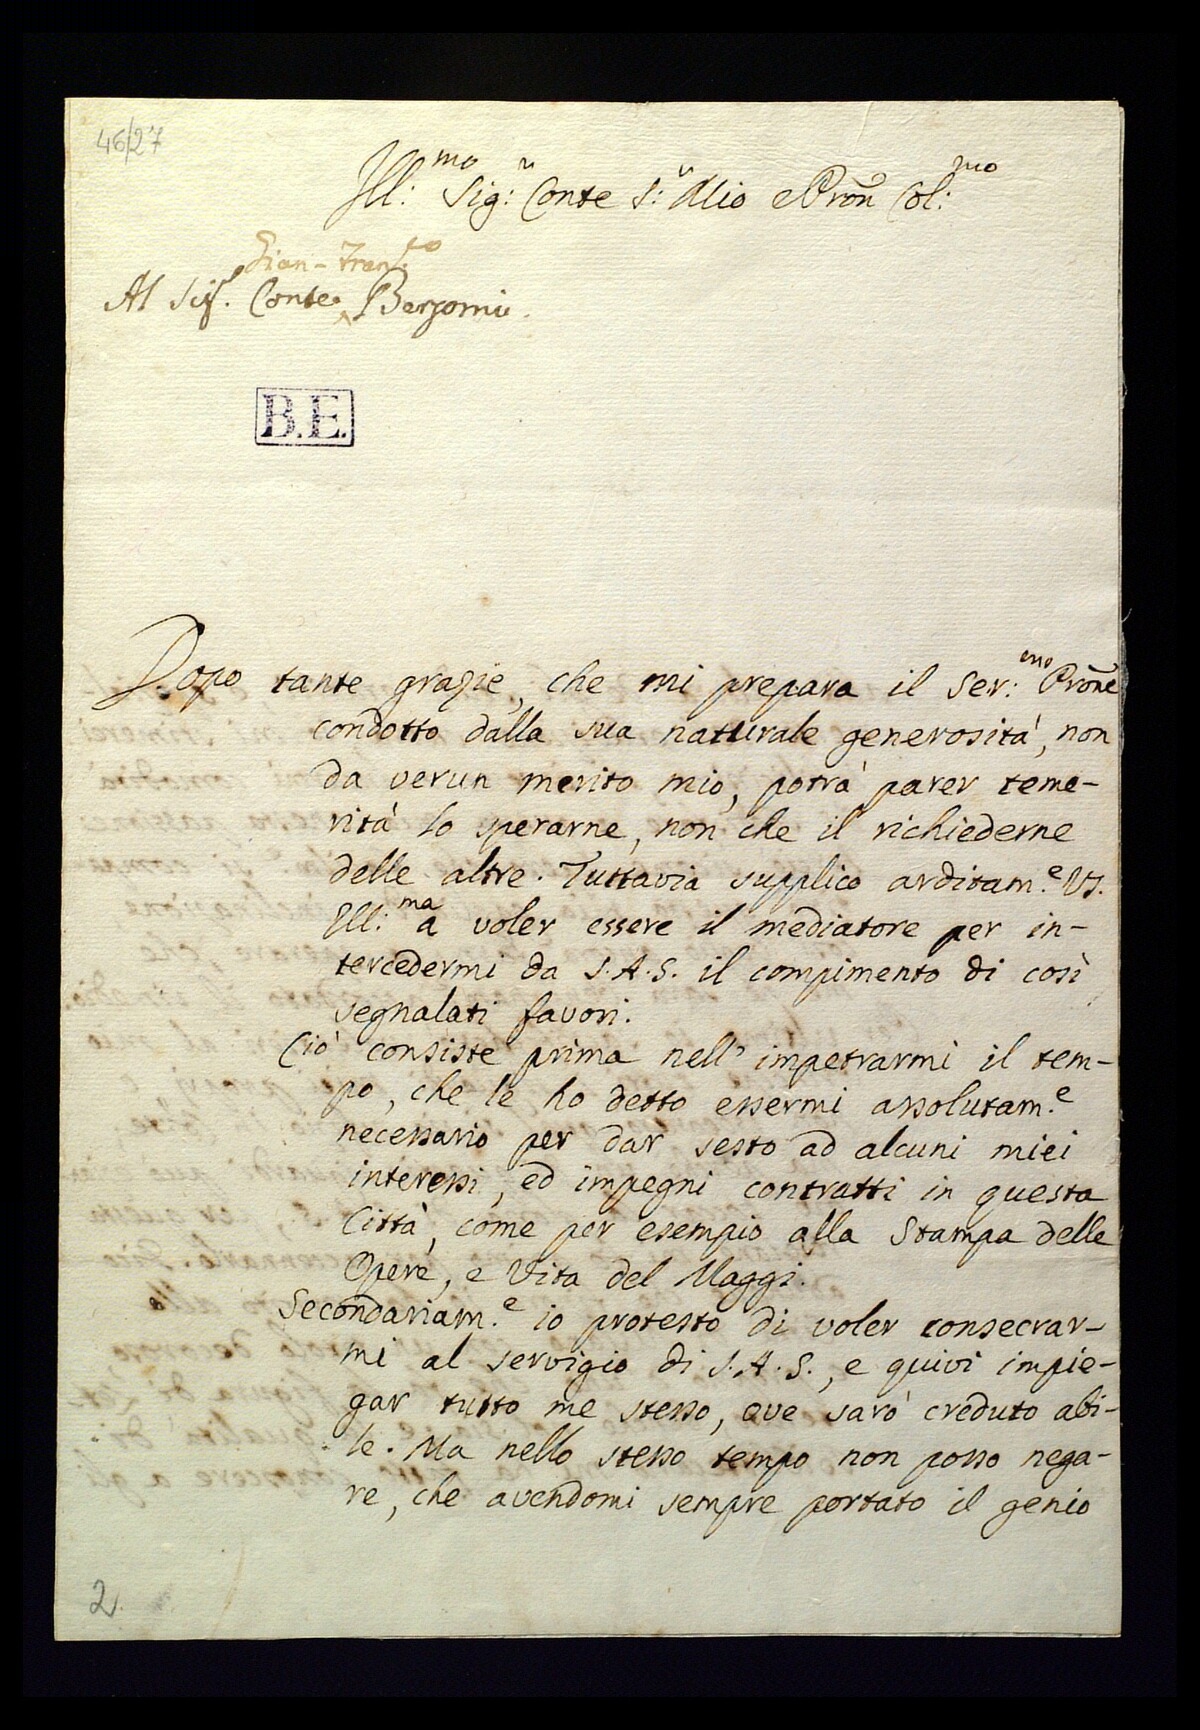 46/27
Ill:mo Sig:r Conte S:r Mio e Pron Col:mo
Gian-Franco
Al Sigr. Conte Bergomi.
B.E.
Dopo tante grazie, che mi prepara il Ser:mo Prone
condotto dalla sua naturale generosità, non
da verun merito mio, potrà parer teme-
rità lo sperarne, non che il richiederne
delle altre. Tuttavia supplico arditam.e VS.
Ill:ma a voler essere il mediatore per in-
tercedermi da S.A.S. il compimento di così
segnalati favori.
Ciò consiste prima nell' impetrarmi il tem-
po, che le ho detto essermi assolutam.e
necessario per dar sesto ad alcuni miei
interessi, ed impegni contratti in questa
Città, come per esempio alla Stampa delle
Opere, e Vita del Maggi.
Secondariam.e io protesto di voler consecrar-
mi al servigio di S.A.S., e quivi impie-
gar tutto me stesso, ove sarò creduto abi-
le. Ma nello stesso tempo non posso nega-
re, che avendomi sempre portato il genio
2.